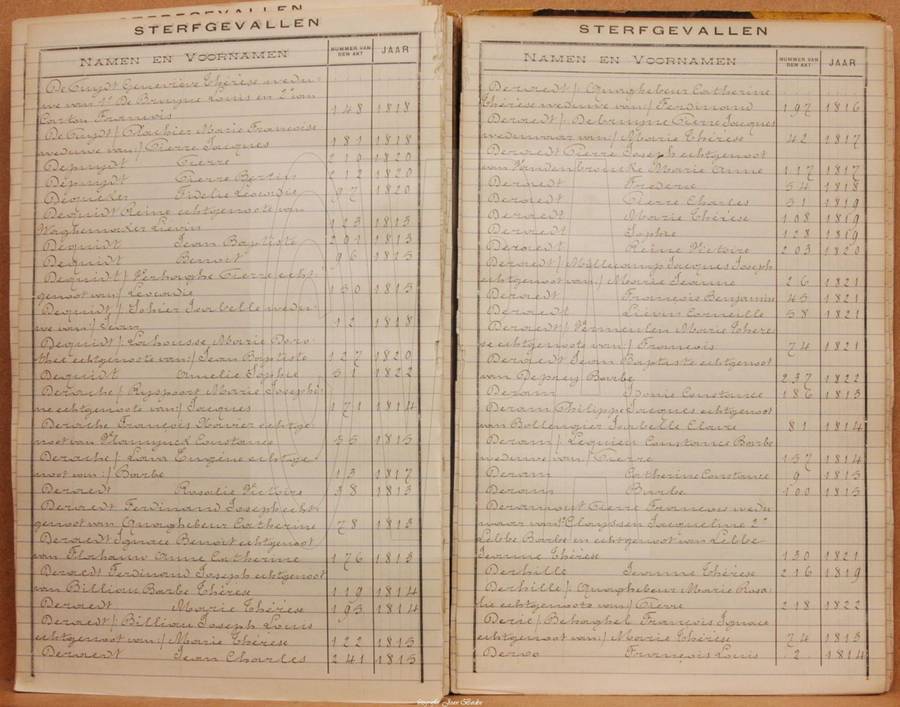 STERFGEVALLEN
STERFGEVALLEN
NAMEN EN VOORNAMEN NUMMER VAN DEN AKT JAAR
De Cuydt Geneviève Thérèse wedu-
we van 1° De Bruyne Louis en 2°
Carlon François 148 1818
De Cuydt / Marie Françoise
weduwe van / Pierre Jacques 181 1818
Depuydt Pierre 210 1820
Depuydt Pierre Bertin 212 1820
Dequeker Fidelie Léocadie 97 1820
Dequidt Reine echtgenoote van
Waghemaker Lievin 123 1813
Dequidt Jean Baptiste 291 1813
Dequidt Benoit 96 1815
Dequidt / Verhaghe Pierre echt-
genoot van / Leocadie 130 1815
Dequidt / Sohier Isabelle wedu-
we van / Jean 12 1818
Dequidt / Lahousse Marie Doro-
thée echtgenoote van / Jean Baptiste 127 1820
Dequidt Amelie Sophie 51 1822
Derache / Ryspoort Marie Josephi-
ne echtgenoote van / Jacques 171 1814
Derache François Xavier echtge-
noot van Plannyck Constance 55 1815
Derache / Lava Eugène echtge-
noot van / Barbe 13 1817
Deraedt Rosalie Victoire 38 1813
Deraedt Ferdinand Joseph echt-
genoot van Quaghebeur Catherine 78 1813
Deraedt Ignace Benoit echtgenoot
van Florhauw Anne Catherine 176 1813
Deraedt Ferdinand Joseph echtgenoot
van Billiau Barbe Thérèse 119 1814
Deraedt Marie Thérèse 195 1814
Deraedt / Billiau Joseph Louis
echtgenoot van / Marie Thérèse 122 1815
Deraedt Jean Charles 241 1815
STERFGEVALLEN
NAMEN EN VOORNAMEN NUMMER VAN DEN AKT JAAR
Deraedt / Quaghebeur Catherine
Thérèse weduwe van / Ferdinand 197 1816
Deraedt / Debruyne Pierre Jacques
weduwaar van / Marie Thérèse 42 1817
Deraedt Pierre Joseph echtgenoot
van Vandenbroucke Marie Anne 117 1817
Deraedt Frederic 54 1818
Deraedt Pierre Charles 51 1819
Deraedt Marie Thérèse 108 1819
Deraedt Sophie 128 1819
Deraedt Reine Victoire 203 1820
Deraedt / Millecamp Jacques Joseph
echtgenoot van / Marie Jeanne 26 1821
Deraedt François Benjamin 45 1821
Deraedt Lievin Corneille 58 1821
Deraedt / Vermeulen Marie Thérè-
se echtgenoote van / François 74 1821
Deraedt Jean Baptiste echtgenoot
van Depuey Barbe 237 1822
Deram Constance 186 1813
Deram Philippe Jacques echtgenoot
van Bollengier Isabelle Claire 81 1814
Deram / Lequien Constance Barbe
weduwe van / Pierre 157 1814
Deram Catherine Constance 9 1815
Deram Barbe 100 1815
Deramout Pierre François wedu-
waar van 1° Clayssen Jacqueline 2°
Lebbe Barbe en echtgenoot van Lebbe
Jeanne Thérèse 130 1821
Derhille Jeanne Thérèse 216 1819
Derhille / Quaghebeur Marie Rosa-
lie echtgenoote van / Pierre 218 1822
Deric / Behaghel François Ignace
echtgenoot van / Marie Thérèse 74 1813
Deroo François Louis 2 1814